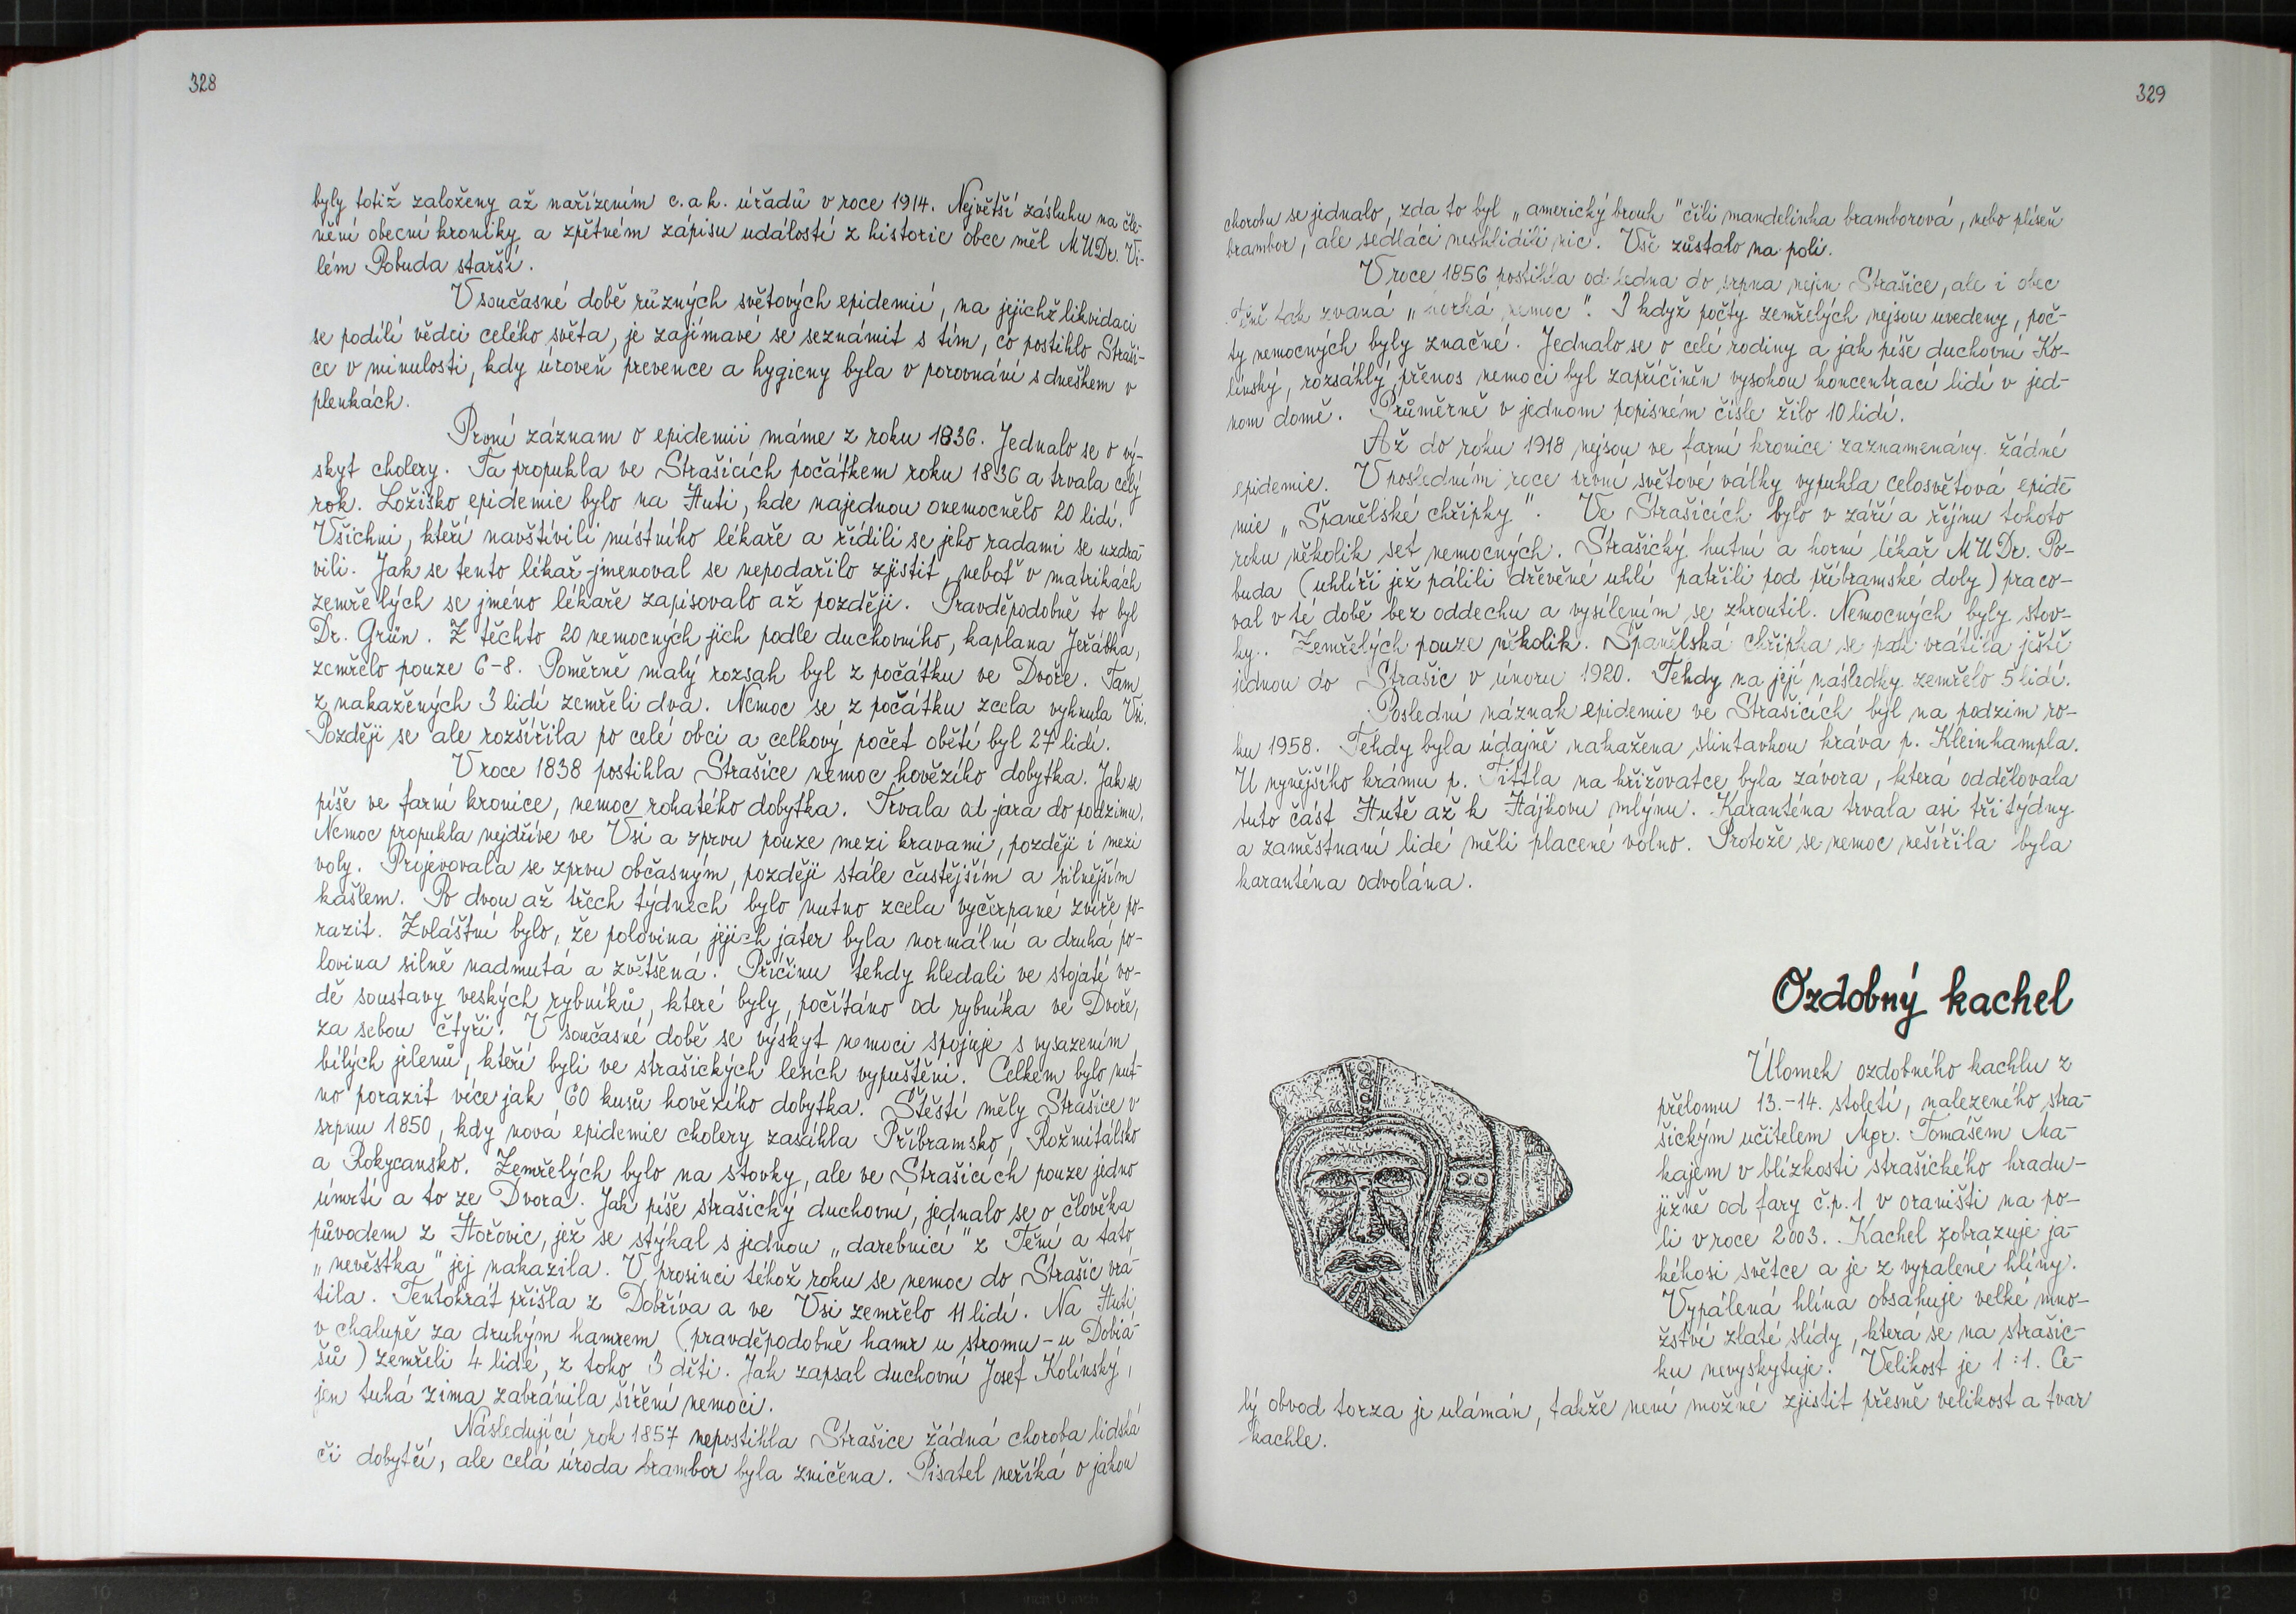 328
byly totiž založeny až nařízením c. a k. úřadů v roce 1914. Největší zásluhu na čle-
nění obecní kroniky a zpětném zápisu událostí z historie obce měl MUDr. Vi-
lém Pobuda starší.
V současné době různých světových epidemií, na jejichž likvidaci
se podílí vědci celého světa, je zajímavé se seznámit s tím, co postihlo Straši-
ce v minulosti, kdy úroveň prevence a hygieny byla v porovnání s dneškem v
plenkách.
První záznam o epidemii máme z roku 1836. Jednalo se o vý-
skyt cholery. Ta propukla ve Strašicích počátkem roku 1836 a trvala celý
rok. Ložisko epidemie bylo na Huti, kde najednou onemocnělo 20 lidí.
Všichni, kteří navštívili místního lékaře a řídili se jeho radami se uzdra-
vili. Jak se tento lékař jmenoval se nepodařilo zjistit, neboť v matrikách
zemřelých se jméno lékaře zapisovalo až později. Pravděpodobně to byl
Dr. Grün. Z těchto 20 nemocných jich podle duchovního, kaplana Jeřábka,
zemřelo pouze 6-8. Poměrně malý rozsah byl z počátku ve Dvoře. Tam
z nakažených 3 lidí zemřeli dva. Nemoc se z počátku zcela vyhnula Vsi.
Později se ale rozšířila po celé obci a celkový počet obětí byl 27 lidí.
V roce 1838 postihla Strašice nemoc hovězího dobytka. Jak se
píše ve farní kronice, nemoc rohatého dobytka. Trvala od jara do podzimu.
Nemoc propukla nejdříve ve Vsi a zprvu pouze mezi kravami, později i mezi
voly. Projevovala se zprvu občasným, později stále častějším a silnějším
kašlem. Po dvou až třech týdnech bylo nutno zcela vyčerpané zvíře po-
razit. Zvláštní bylo, že polovina jejich jater byla normální a druhá po-
lovina silně nadmutá a zvětšená. Příčinu tehdy hledali ve stojaté vo-
dě soustavy veských rybníků, které byly, počítáno od rybníka ve Dvoře,
za sebou čtyři. V současné době se výskyt nemoci spojuje s vysazením
bílých jelenů, kteří byli ve strašických lesích vypuštěni. Celkem bylo nut-
no porazit více jak 60 kusů hovězího dobytka. Štěstí měly Strašice v
srpnu 1850, kdy nová epidemie cholery zasáhla Příbramsko, Rožmitálsko
a Rokycansko. Zemřelých bylo na stovky, ale ve Strašicích pouze jedno
úmrtí a to ze Dvora. Jak píše strašický duchovní, jednalo se o člověka
původem z Hořovic, jež se stýkal s jednou „darebnicí" z Tění a tato
„nevěstka" jej nakazila. V prosinci téhož roku se nemoc do Strašic vrá-
tila. Tentokrát přišla z Dobříva a ve Vsi zemřelo 11 lidí. Na Huti
v chalupě za druhým hamrem (pravděpodobně hamr u stromu - u Dobiá-
šů) zemřeli 4 lidé, z toho 3 děti. Jak zapsal duchovní Josef Kolínský,
jen tuhá zima zabránila šíření nemoci.
Následující rok 1857 nepostihla Strašice žádná choroba lidská
či dobytčí, ale celá úroda brambor byla zničena. Pisatel neříká o jakou
329
chorobu se jednalo, zda to byl „americký brouk" čili mandelinka bramborová, nebo plíseň
brambor, ale sedláci nesklidili nic. Vše zůstalo na poli.
V roce 1856 postihla od ledna do srpna nejen Strašice, ale i obec
Těně tak zvaná „horká nemoc". I když počty zemřelých nejsou uvedeny, poč-
ty nemocných byly značné. Jednalo se o celé rodiny a jak píše duchovní Ko-
línský, rozsáhlý přenos nemoci byl zapříčiněn vysokou koncentrací lidí v jed-
nom domě. Průměrně v jednom popisném čísle žilo 10 lidí.
Až do roku 1918 nejsou ve farní kronice zaznamenány žádné
epidemie. V posledním roce první světové války vypukla celosvětová epide-
mie „Španělské chřipky". Ve Strašicích bylo v září a říjnu tohoto
roku několik set nemocných. Strašický hutní a horní lékař MUDr. Po-
buda (uhlíři jež pálili dřevěné uhlí patřili pod příbramské doly) praco-
val v té době bez oddechu a vysílením se zhroutil. Nemocných byly stov-
ky. Zemřelých pouze několik. Španělská chřipka se pak vrátila ještě
jednou do Strašic v únoru 1920. Tehdy na její následky zemřelo 5 lidí.
Poslední náznak epidemie ve Strašicích byl na podzim ro-
ku 1958. Tehdy byla údajně nakažena slintavkou kráva p. Kleinhampla.
U nynějšího krámu p. Tittla na křižovatce byla závora, která oddělovala
tuto část Hutě až k Hájkovu mlýnu. Karanténa trvala asi tři týdny
a zaměstnaní lidé měli placené volno. Protože se nemoc nešířila byla
karanténa odvolána.
Ozdobný kachel
Úlomek ozdobného kachlu z
přelomu 13.-14. století, nalezeného stra-
šickým učitelem Mgr. Tomášem Ma-
kajem v blízkosti strašického hradu -
jižně od fary č.p. 1 v oraništi na po-
li v roce 2003. Kachel zobrazuje ja-
kéhosi světce a je z vypálené hlíny.
Vypálená hlína obsahuje velké mno-
žství zlaté slídy, která se na strašic-
ku nevyskytuje. Velikost je 1:1. Ce-
lý obvod torza je ulámán, takže není možné zjistit přesně velikost a tvar
kachle.